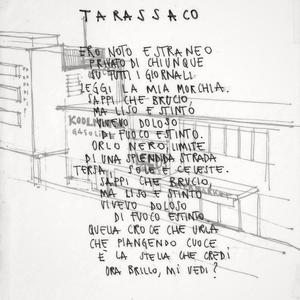 TARASSACO
ERO NOTO ESTRANEO
PRIVATO DI CHIUNQUE
SU TUTTI I GIORNALI
LEGGI LA MIA MORCHIA.
SAPPI CHE BRUCIO,
MA LISO E STINTO
VIVEVO DOLOSO
DI FUOCO ESTINTO.
ORLO NERO, LIMITE
DI UNA SPLENDIDA STRADA
TERSA, SOLE E CELESTE.
SAPPI CHE BRUCIO
MA LISO E STINTO
VIVEVO DOLOSO
DI FUOCO ESTINTO
QUELLA CROCE CHE URLA
CHE PIANGENDO CUOCE
È LA STELLA CHE CREDI
ORA BRILLO, MI VEDI?
GASOLI